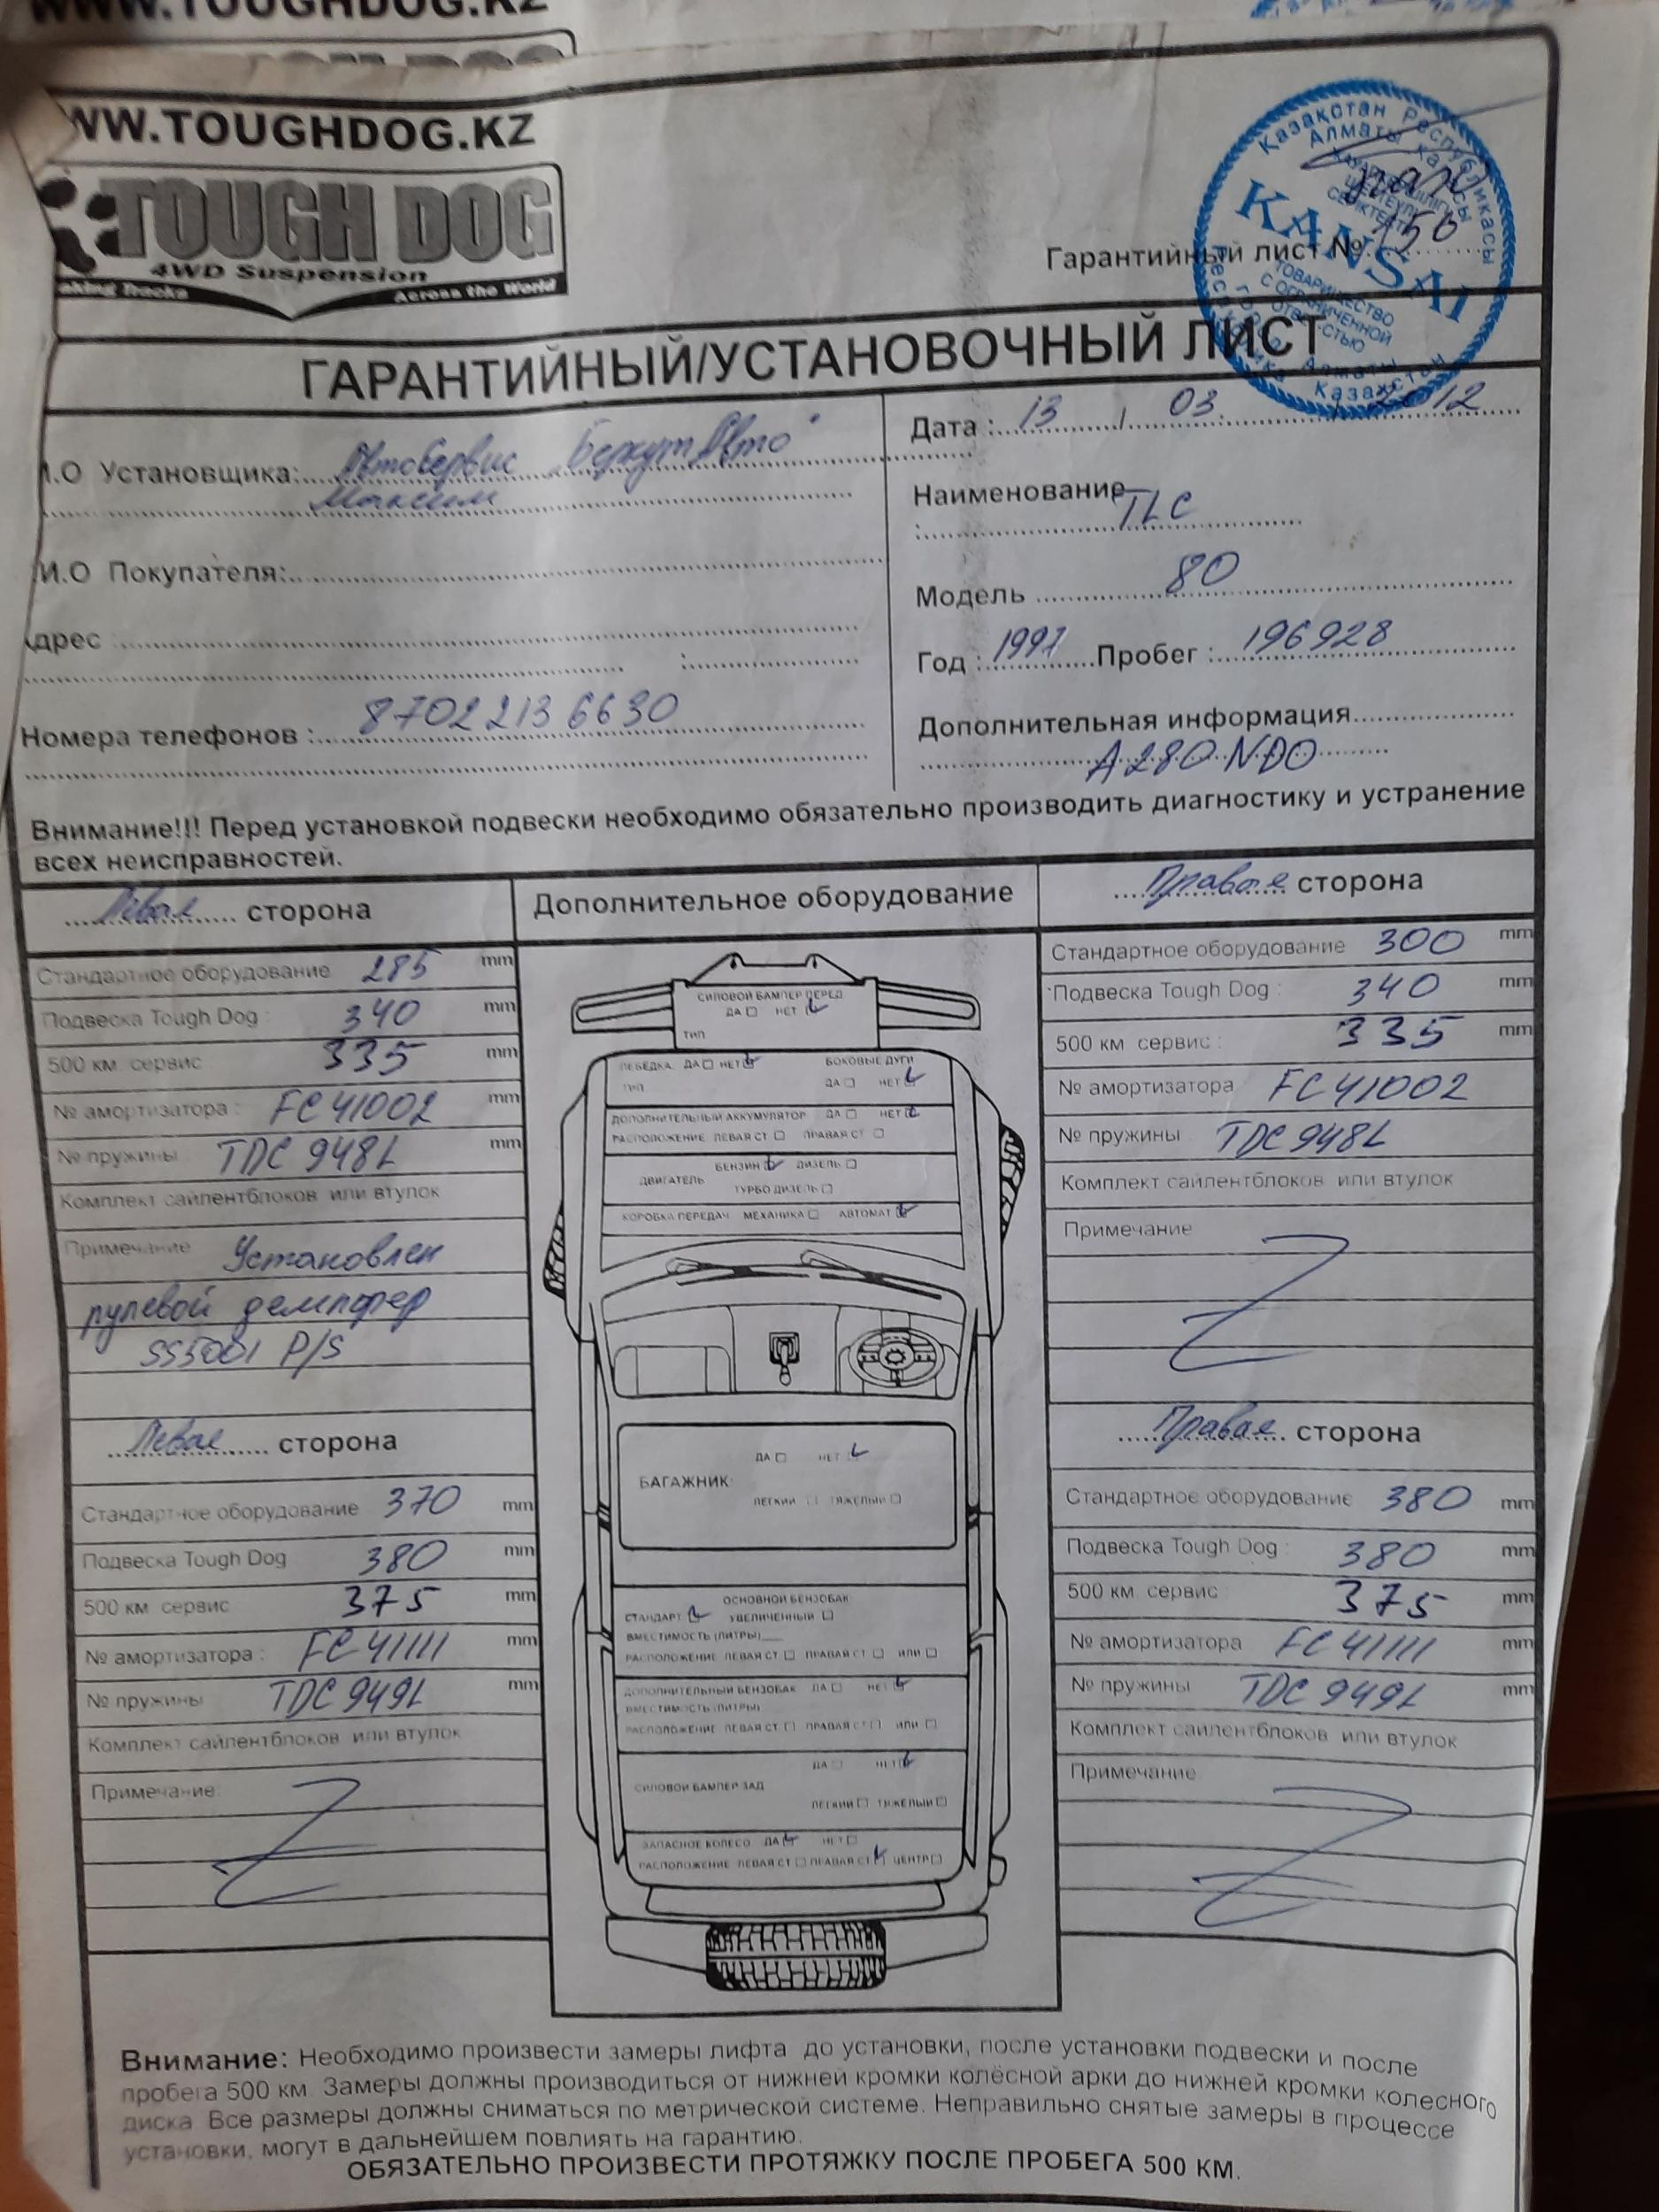 WWW.TOUGHDOG.KZ
WW.TOUGHDOG.KZ
TOUGH DOG
4WD Suspension
aking Tracks Across the World
Қазақстан Республикасы
Алматы қаласы
KANSAI
ТОВАРИЩЕСТВО
С ОГРАНИЧЕННОЙ
ОТВЕТ-СТЬЮ
Гарантийный лист № 156
ГАРАНТИЙНЫЙ/УСТАНОВОЧНЫЙ ЛИСТ
.И.О Установщика: Автосервис "Беркут Авто"
Максим
И.О Покупателя:
дрес :
Номера телефонов : 8702 213 6630
Дата : 13 / 03 / 2012
Наименование
: TLC
Модель 80
Год : 1997 Пробег : 196928
Дополнительная информация
A 280 NDO
Внимание!!! Перед установкой подвески необходимо обязательно производить диагностику и устранение
всех неисправностей.
Левая сторона
Стандартное оборудование 285 mm
Подвеска Tough Dog : 340 mm
500 км. сервис 335 mm
№ амортизатора : FC 41002 mm
№ пружины TDC 948L mm
Комплект сайлентблоков или втулок
Примечание Установлен
рулевой демпфер
SS5001 P/S
Левая сторона
Стандартное оборудование 370 mm
Подвеска Tough Dog 380 mm
500 км. сервис 375 mm
№ амортизатора : FC 41111 mm
№ пружины TDC 949L mm
Комплект сайлентблоков или втулок
Примечание:
Дополнительное оборудование
СИЛОВОЙ БАМПЕР ПЕРЕД
ДА НЕТ
ТИП
ЛЕБЕДКА: ДА НЕТ БОКОВЫЕ ДУГИ
ТИП ДА НЕТ
ДОПОЛНИТЕЛЬНЫЙ АККУМУЛЯТОР ДА НЕТ
РАСПОЛОЖЕНИЕ ЛЕВАЯ СТ ПРАВАЯ СТ
БЕНЗИН ДИЗЕЛЬ
ДВИГАТЕЛЬ
ТУРБО ДИЗЕЛЬ
КОРОБКА ПЕРЕДАЧ МЕХАНИКА АВТОМАТ
ДА НЕТ
БАГАЖНИК:
ЛЕГКИЙ ТЯЖЕЛЫЙ
ОСНОВНОЙ БЕНЗОБАК
СТАНДАРТ УВЕЛИЧЕННЫЙ
ВМЕСТИМОСТЬ (ЛИТРЫ)___
РАСПОЛОЖЕНИЕ ЛЕВАЯ СТ ПРАВАЯ СТ ИЛИ
ДОПОЛНИТЕЛЬНЫЙ БЕНЗОБАК ДА НЕТ
ВМЕСТИМОСТЬ (ЛИТРЫ)
РАСПОЛОЖЕНИЕ ЛЕВАЯ СТ ПРАВАЯ СТ ИЛИ
ДА НЕТ
СИЛОВОЙ БАМПЕР ЗАД
ЛЕГКИЙ ТЯЖЕЛЫЙ
ЗАПАСНОЕ КОЛЕСО ДА НЕТ
РАСПОЛОЖЕНИЕ ЛЕВАЯ СТ ПРАВАЯ СТ ЦЕНТР
Правая сторона
Стандартное оборудование 300 mm
Подвеска Tough Dog : 340 mm
500 км сервис : 335 mm
№ амортизатора FC 41002
№ пружины TDC 948L
Комплект сайлентблоков или втулок
Примечание
Правая сторона
Стандартное оборудование 380 mm
Подвеска Tough Dog : 380 mm
500 км. сервис : 375 mm
№ амортизатора FC 41111 mm
№ пружины TDC 949L mm
Комплект сайлентблоков или втулок
Примечание
Внимание: Необходимо произвести замеры лифта до установки, после установки подвески и после
пробега 500 км. Замеры должны производиться от нижней кромки колёсной арки до нижней кромки колесного
диска. Все размеры должны сниматься по метрической системе. Неправильно снятые замеры в процессе
установки, могут в дальнейшем повлиять на гарантию.
ОБЯЗАТЕЛЬНО ПРОИЗВЕСТИ ПРОТЯЖКУ ПОСЛЕ ПРОБЕГА 500 КМ.